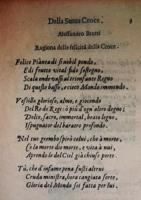 Della Santa Croce. 9
Alessandro Bratti
Ragiona della felicità della Croce.
Felice Pianta di sì nobil pondo,
E di frutto vital sido sostegno,
Scala ond'huomo al trionfante Regno
Di questo basso, e cieco Mondo immondo.
Vessillo glorioso, almo, e giocondo
Del Re de Regi ò più d'ogn'altro degno;
Dolce, sacro, immortal, beato legno,
Espugnator del baratro profondo.
Per te morendo sprò colui, che à morte,
E la morte diè morte, e vita à noi,
Aprendo le del Ciel già chiuse porte
Tù, che d'infame pena fusti altrui
Cruda ministra, hora cangiata sorte,
Gloria del Mondo sei fatta per lui.